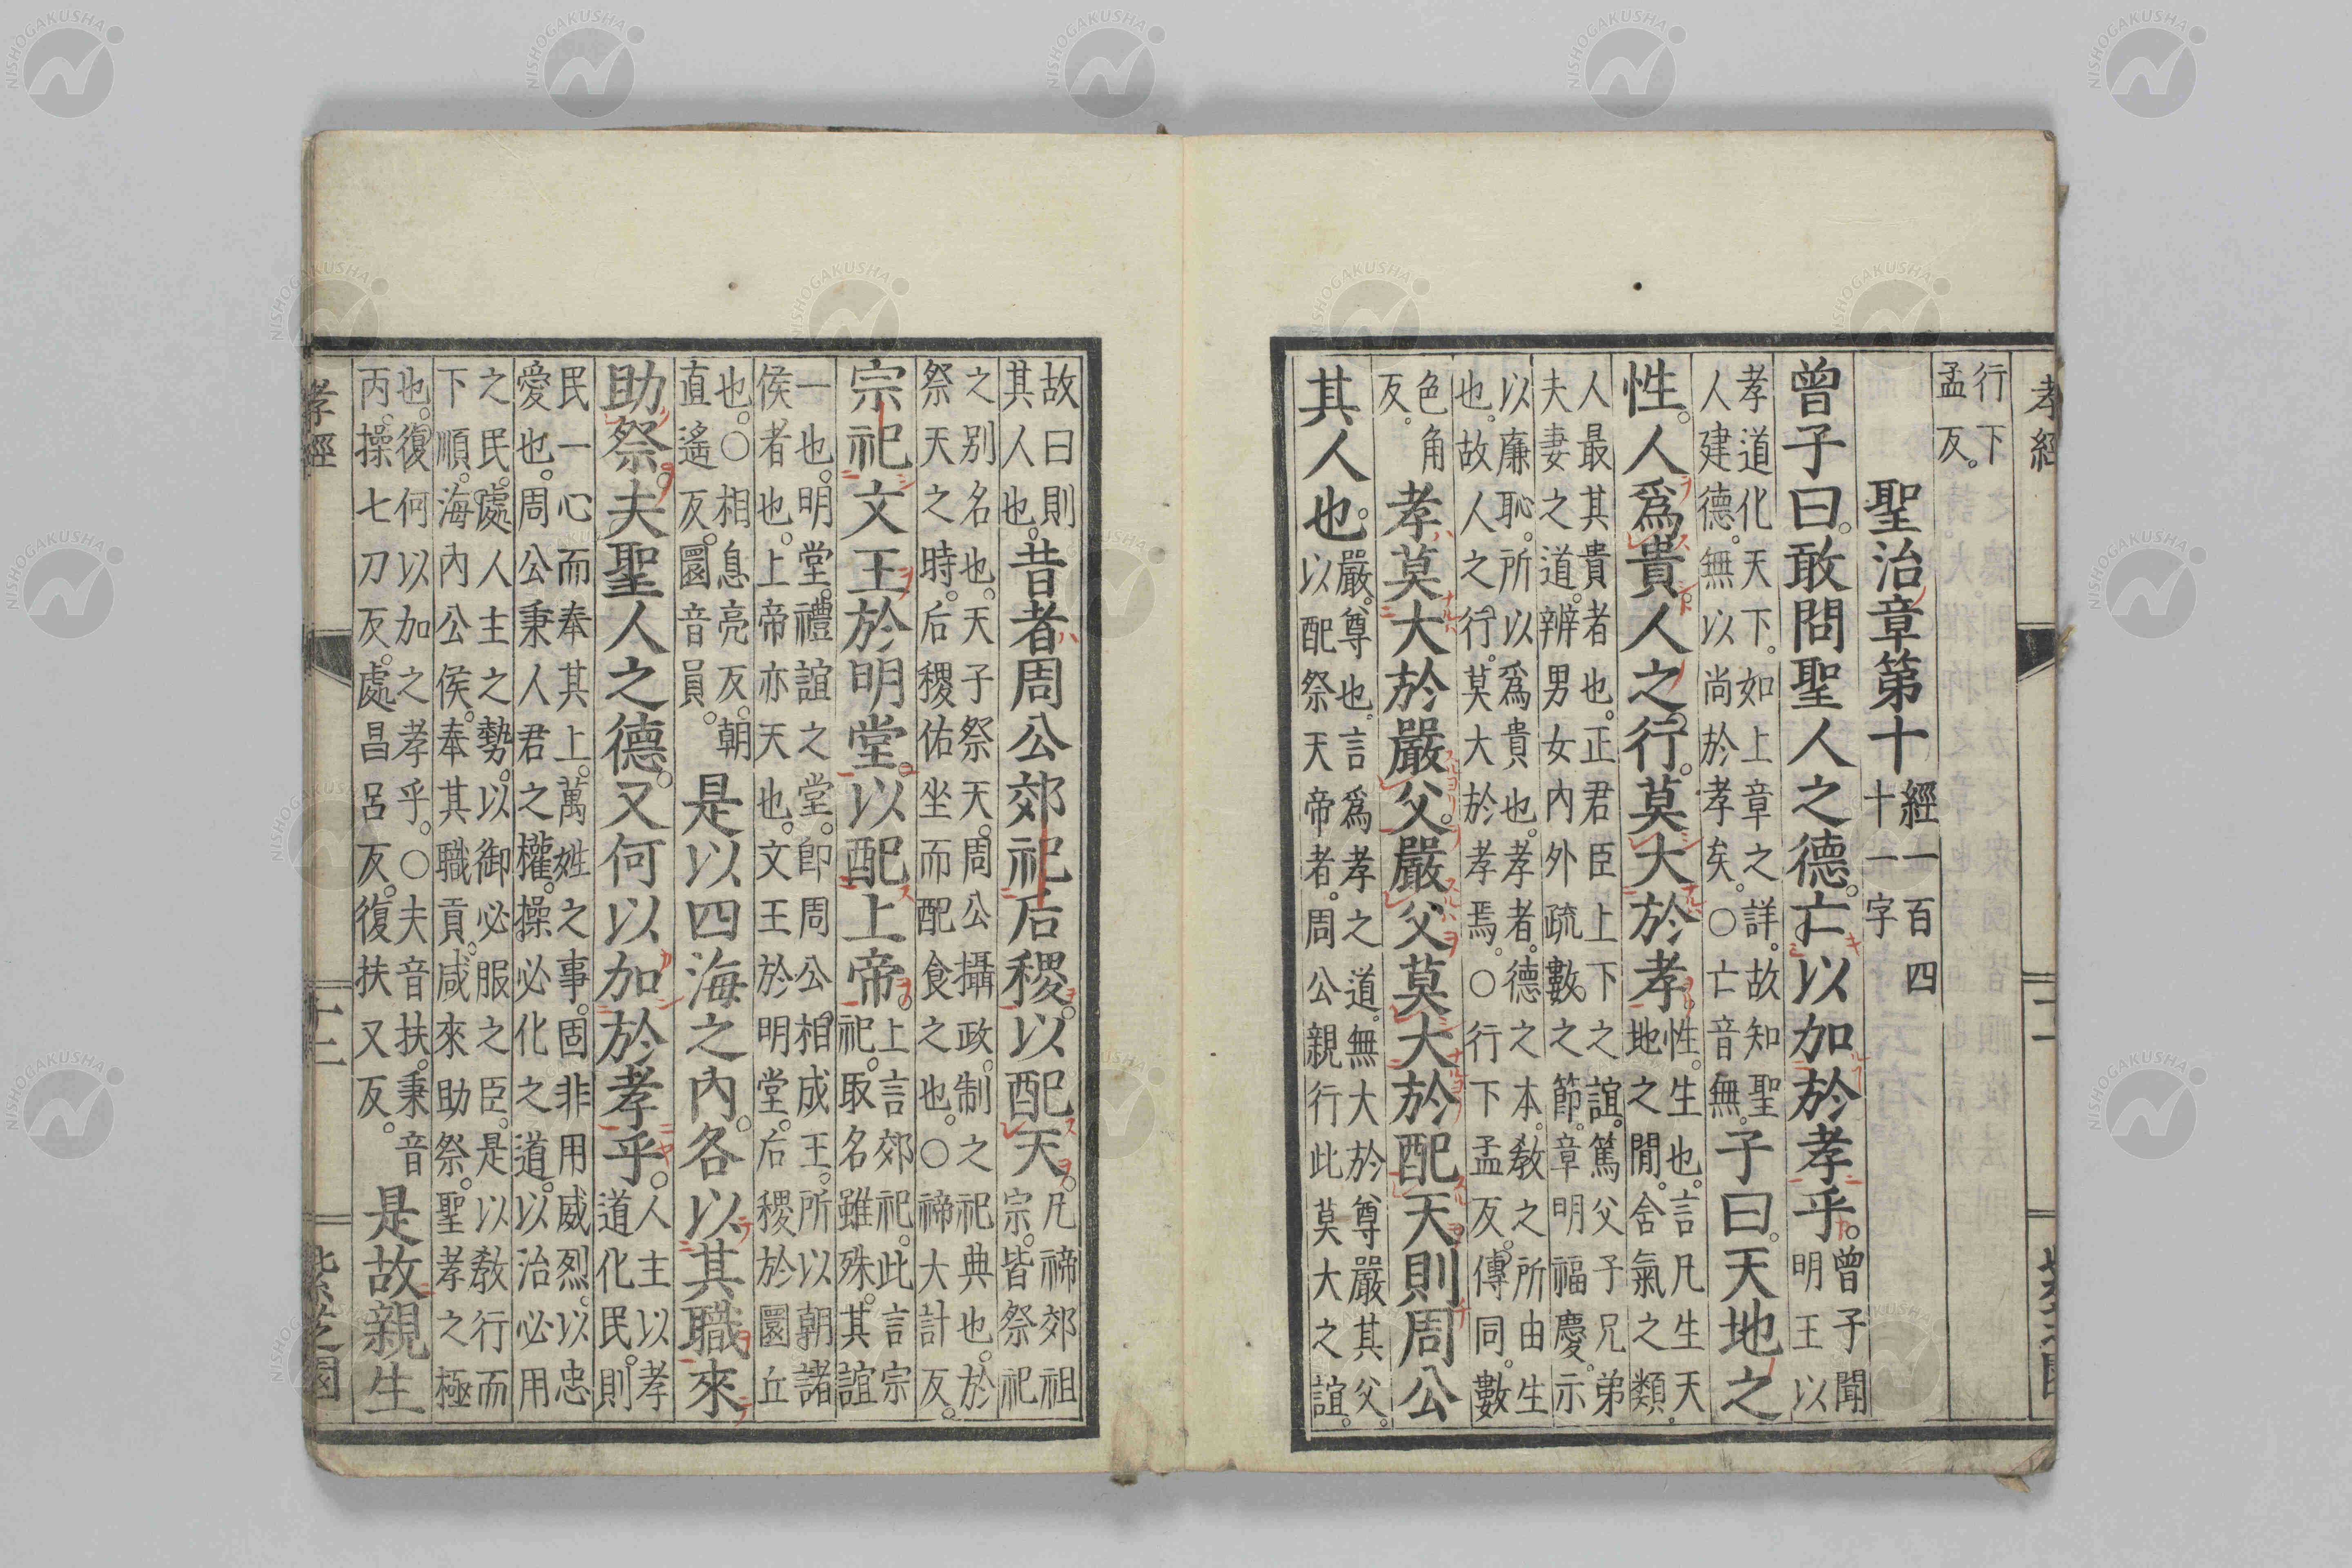 孝經
行下孟反。
聖治章第十 經一百四十一字
曾子曰。敢問聖人之德。亡以加於孝乎。曾子聞明王以
孝道化天下。如上章之詳。故知聖人建德。無以尚於孝矣。○亡音無。子曰。天地之
性。人爲貴。人之行。莫大於孝。性。生也。言凡生天地之閒。含氣之類。
人最其貴者也。正君臣上下之誼。篤父子兄弟夫妻之道。辨男女內外疏數之節。章明福慶。示
以廉恥。所以爲貴也。孝者。德之本。敎之所由生也。故人之行。莫大於孝焉。○行下孟反。傳同。數
色角反。孝莫大於嚴父。嚴父莫大於配天。則周公
其人也。嚴。尊也。言爲孝之道。無大於尊嚴其父。以配祭天帝者。周公親行此莫大之誼。
故曰則其人也。昔者周公郊祀后稷。以配天。凡禘郊祖宗。皆祭祀
之別名也。天子祭天。周公攝政。制之祀典也。於祭天之時。后稷佑坐而配食之也。○禘大計反。
宗祀文王於明堂。以配上帝。上言郊祀。此言宗祀。取名雖殊。其誼
一也。明堂。禮誼之堂。卽周公相成王。所以朝諸侯者也。上帝亦天也。文王於明堂。后稷於圜丘
也。○相息亮反。朝直遙反。圜音員。是以四海之內。各以其職來
助祭。夫聖人之德。又何以加於孝乎。人主以孝道化民。則
民一心而奉其上。萬姓之事。固非用威烈。以忠愛也。周公秉人君之權。操必化之道。以治必用
之民。處人主之勢。以御必服之臣。是以敎行而下順。海內公侯。奉其職貢。咸來助祭。聖孝之極
也。復何以加之孝乎。○夫音扶。秉音丙。操七刀反。處昌呂反。復扶又反。是故親生
孝經 十二 紫芝園
NISHOGAKUSHA